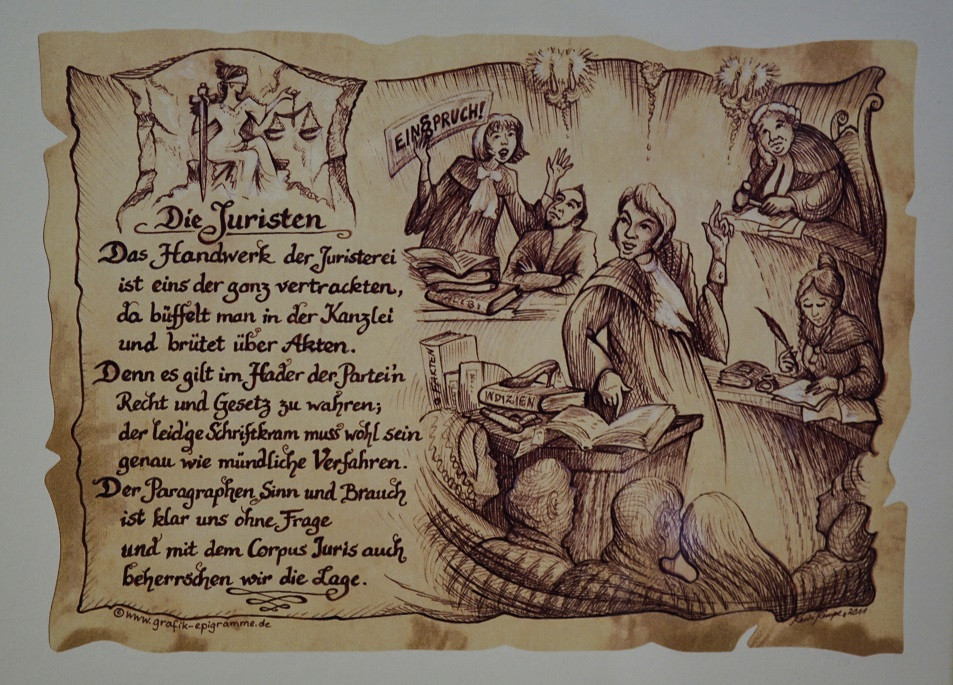 Die Juristen
Das Handwerk der Juristerei
ist eins der ganz vertrackten,
da büffelt man in der Kanzlei
und brütet über Akten.
Denn es gilt im Hader der Partei'n
Recht und Gesetz zu wahren;
der leid'ge Schriftkram muss wohl sein
genau wie mündliche Verfahren.
Der Paragraphen Sinn und Brauch
ist klar uns ohne Frage
und mit dem Corpus Juris auch
beherrschen wir die Lage.
©www.grafik-epigramme.de
EIN§PRUCH!
FAKTEN
INDIZIEN
2011